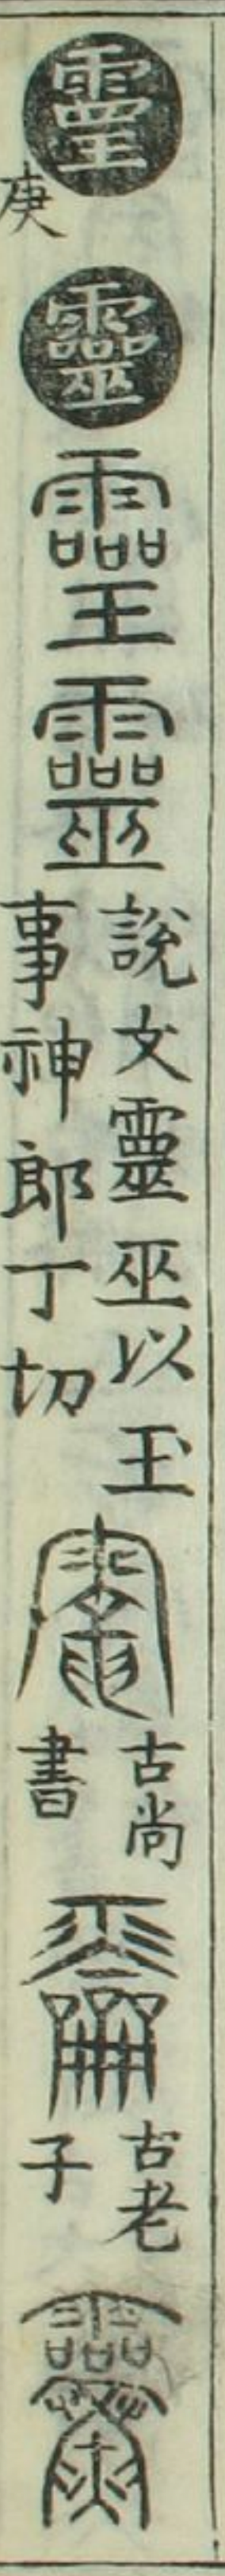 𤫊庚
靈
𤫊
靈
說文靈巫以玉
事神郎丁切
古尚
書
古老
子